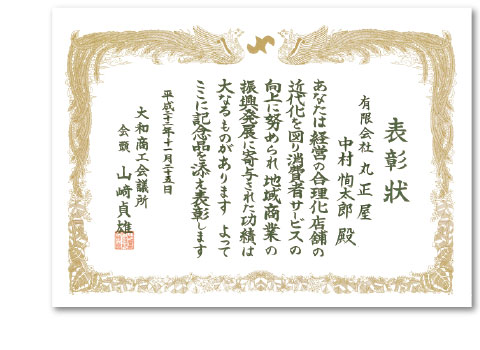 表彰状
有限会社 丸正屋
中村恂太郎 殿
あなたは経営の合理化店舗の
近代化を図り消費者サービスの
向上に努められ地域商業の
振興発展に寄与された功績は
大なるものがあります よって
ここに記念品を添え表彰します
平成二十一年十一月二十五日
大和商工会議所
会頭 山﨑貞雄